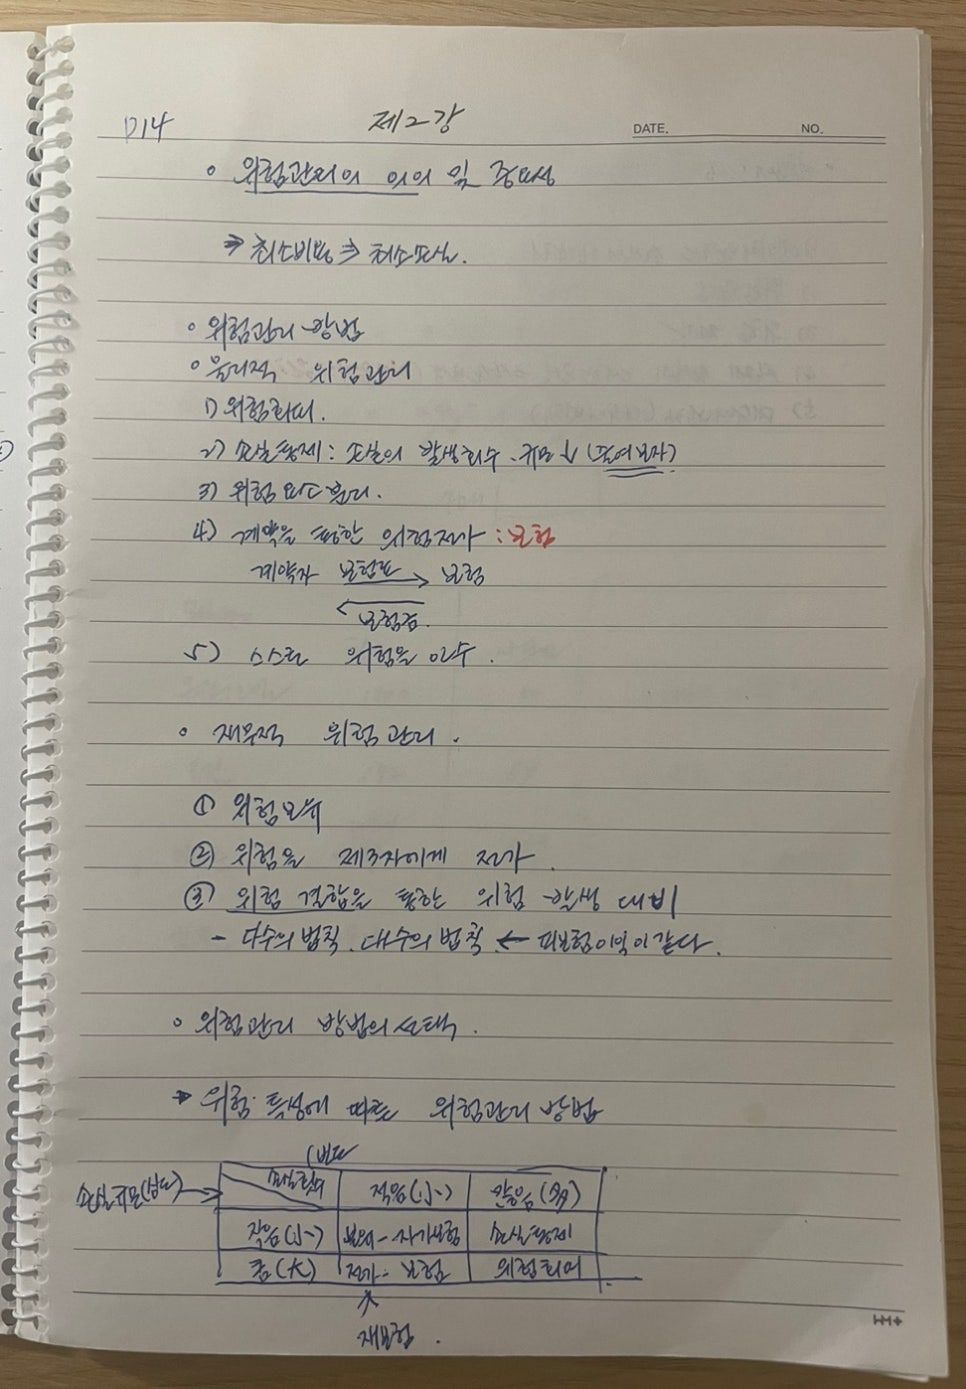 P14 제2강
DATE. NO.
◦ 위험관리의 의의 및 중요성
⇒ 최소비용 ⇒ 최소손실.
◦ 위험관리 방법
◦ 물리적 위험관리
1) 위험회피.
2) 손실통제: 손실의 발생회수. 규모↓ (줄여보자)
3) 위험요소분리.
4) 계약을 통한 위험전가 : 보험
계약자 보험료 → 보험
← 보험금.
5) 스스로 위험을 인수.
◦ 재무적 위험관리.
① 위험보유
② 위험을 제3자에게 전가.
③ 위험 결합을 통한 위험 발생 대비
- 다수의 법칙. 대수의 법칙 ← 피보험이익이 같다.
◦ 위험관리 방법의 선택.
→ 위험 특성에 따른 위험관리 방법
(빈도
손실규모(심도) → 손실횟수 적음(小) 많음(多)
작음(小) 보유-자가보험 손실통제
큼(大) 전가: 보험 위험회피
↑
재보험.